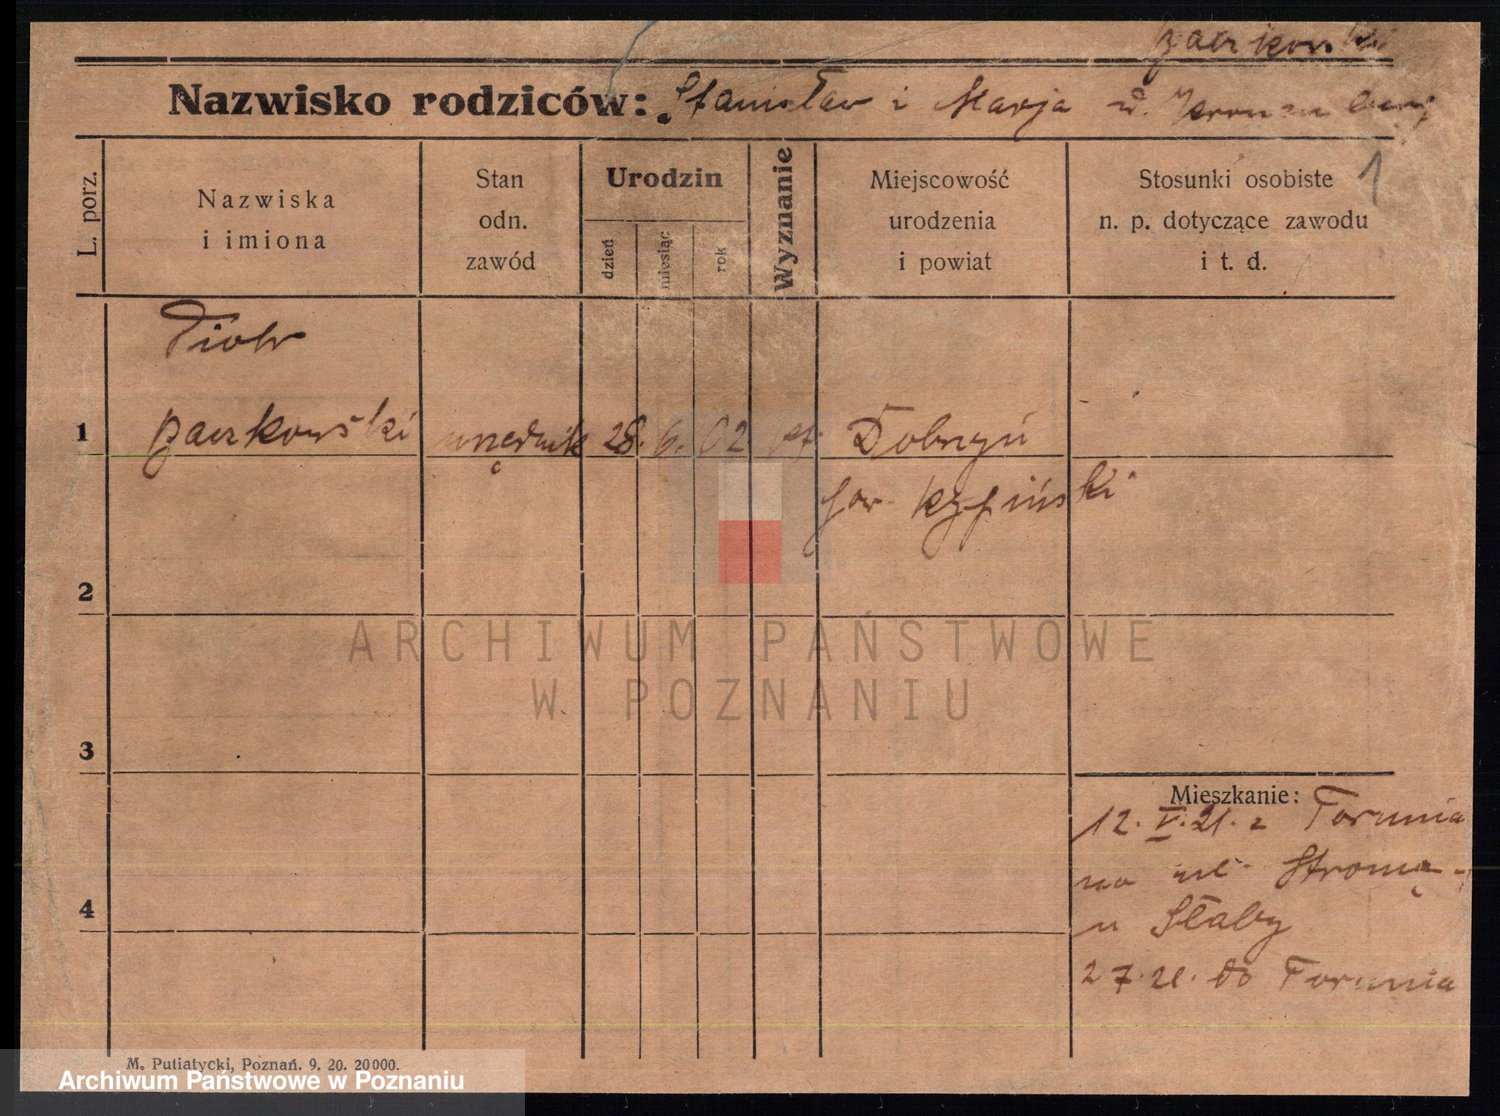 Baczkowski
Nazwisko rodziców: Stanisław i Marja
1
L. porz.
Nazwiska
i imiona
Stan
odn.
zawód
Urodzin
dzień
miesiąc
rok
Wyznanie
Miejscowość
urodzenia
i powiat
Stosunki osobiste
n. p. dotyczące zawodu
i t. d.
Piotr
1 Baczkowski urzędnik 28. 6. 02 Dobrzyń
2
3
4
Mieszkanie:
12. V. 21. z Torunia
na ul. Stromą
u Słaby
2 7. 21. do Torunia
ARCHIWUM PAŃSTWOWE
W POZNANIU
M. Putiatycki, Poznań. 9. 20. 20000.
Archiwum Państwowe w Poznaniu